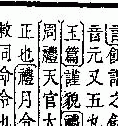 音元又五
玉篇謹貌禮
周禮天官大
正也禮月令
敕同命令也